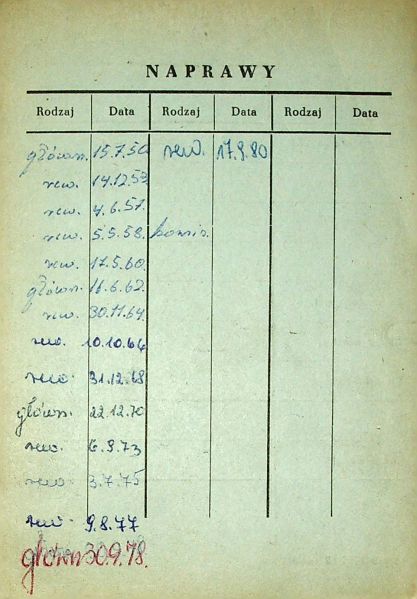 NAPRAWY
Rodzaj Data Rodzaj Data Rodzaj Data
główn. 15.7.50 rew. 17.9.80
rew. 14.12.53
rew. 4.6.57.
rew. 5.5.58.
rew. 17.5.60.
główn. 16.6.62.
rew. 30.11.64.
rew. 10.10.66
rew. 31.12.68
główn. 22.12.70
rew. 6.9.73
rew. 3.7.75
rew. 9.8.77
główn 30.9.78.